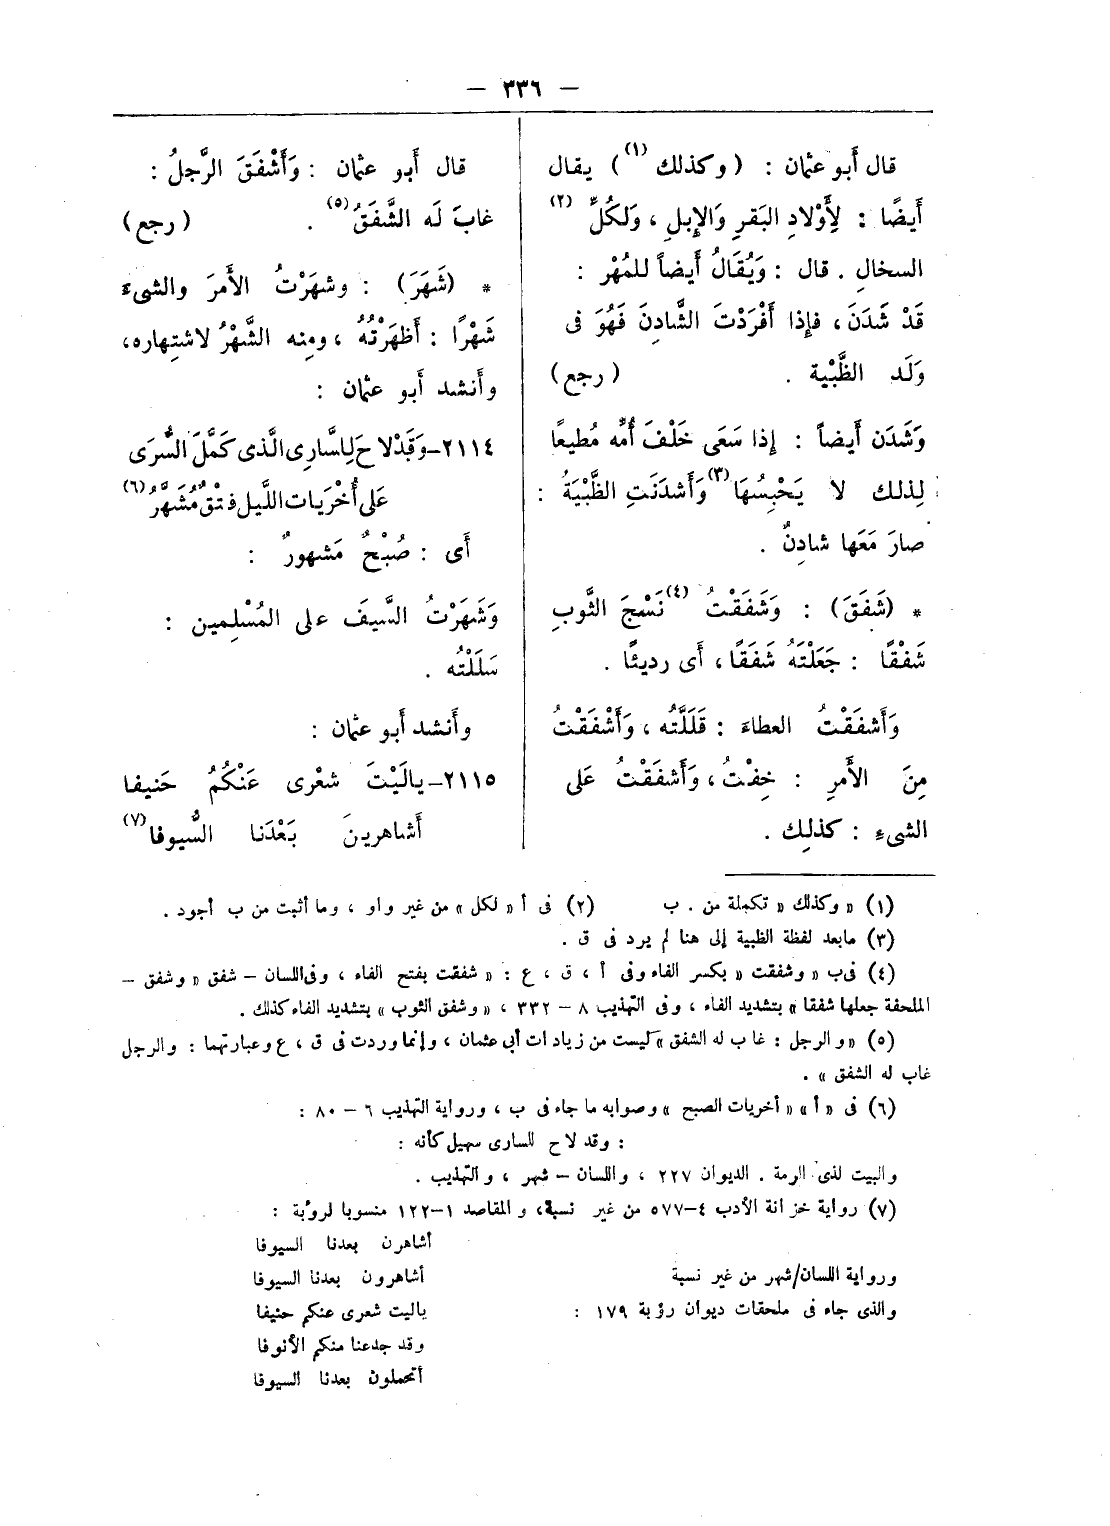 — ٣٣٦ —
قال أَبو عثمان : ( وكذلك (١) ) يقال
أَيضًا : لِأَوْلادِ البَقرِ وَالإبلِ ، وَلكُلِّ (٢)
السخالِ . قال : وَيُقَالُ أَيضاً للمُهْر :
قَدْ شَدَنَ ، فإِذا أَفْرَدْتَ الشَّادِنَ فَهُوَ فى
وَلَد الظَّبْية . ( رجع )
وَشَدَن أَيضاً : إذا سَعَى خَلْفَ أُمِّه مُطيعًا
لِذلك لا يَحْبِسُهَا (٣) وَأَشدَنَتِ الظَّبْيَةُ :
صارَ مَعَها شادِنٌ .
* (شَفَقَ) : وَشَفَقْتُ (٤) نَسْجَ الثَّوبِ
شَفْقًا : جَعَلْتَهُ شَفَقًا ، أَى رديئًا .
وَأَشفَقْتُ العطاءَ : قَلَّلَتُه ، وَأَشْفَقْتُ
مِنَ الأَمرِ : خِفْتُ ، وَأَشفَقْتُ عَلى
الشىءِ : كذلِك .
قال أَبو عثمان : وَأَشْفَقَ الرَّجلُ :
غابَ لَه الشَّفَقُ (٥) . ( رجع )
* (شَهَرَ) : وشهَرْتُ الأَمرَ والشىءَ
شَهْرًا : أَظهَرْتُهُ ، ومِنه الشَّهْرُ لاشتِهاره ،
وأَنشد أَبو عثمان :
٢١١٤–وقَدْ لاحَ لِلسَّارِى الَّذى كَمَّلَ السُّرَى
عَلى أُخْرَياتِ اللَّيل فتْقٌ مُشَهَّرُ (٦)
أَى : صُبْحٌ مَشهورٌ :
وَشَهَرْتُ السَّيفَ على المُسْلِمين :
سَلَلْتُه .
وأَنشد أَبو عثمان :
٢١١٥–يالَيْتَ شعْرى عَنْكُمُ حَنيفا
أَشاهرينَ بَعْدَنا السُّيوفا (٧)
(١) « وكذلك » تكملة من . ب (٢) فى أ « لكل » من غير واو ، وما أثبت من ب أجود .
(٣) مابعد لفظة الظبية إلى هنا لم يرد فى ق .
(٤) فى ب « وشفقت » بكسر الفاء وفى أ ، ق ، ع : « شفقت بفتح الفاء ، وفى اللسان – شفق « وشفق –
الملحفة جعلها شفقا » بتشديد الفاء ، وفى التهذيب ٨ – ٣٣٢ ، « وشفق الثوب » بتشديد الفاء كذلك .
(٥) « والرجل : غاب له الشفق » ليست من زيادات أبى عثمان ، وإنما وردت فى ق ، ع وعبارتهما : والرجل
غاب له الشفق » .
(٦) فى « أ » « أخريات الصبح » وصوابه ما جاء فى ب ، ورواية التهذيب ٦ – ٨٠ :
: وقد لاح للسارى سهيل كأنه :
والبيت لذى الرمة . الديوان ٢٢٧ ، واللسان – شهر ، والتهذيب .
(٧) رواية خزانة الأدب ٤–٥٧٧ من غير نسبة، والمقاصد ١–١٢٢ منسوبا لرؤبة :
أشاهرن بعدنا السيوفا
ورواية اللسان/شهر من غير نسبة أشاهرون بعدنا السيوفا
والذى جاء فى ملحقات ديوان رؤبة ١٧٩ : ياليت شعرى عنكم حنيفا
وقد جدعنا منكم الأنوفا
أتحملون بعدنا السيوفا